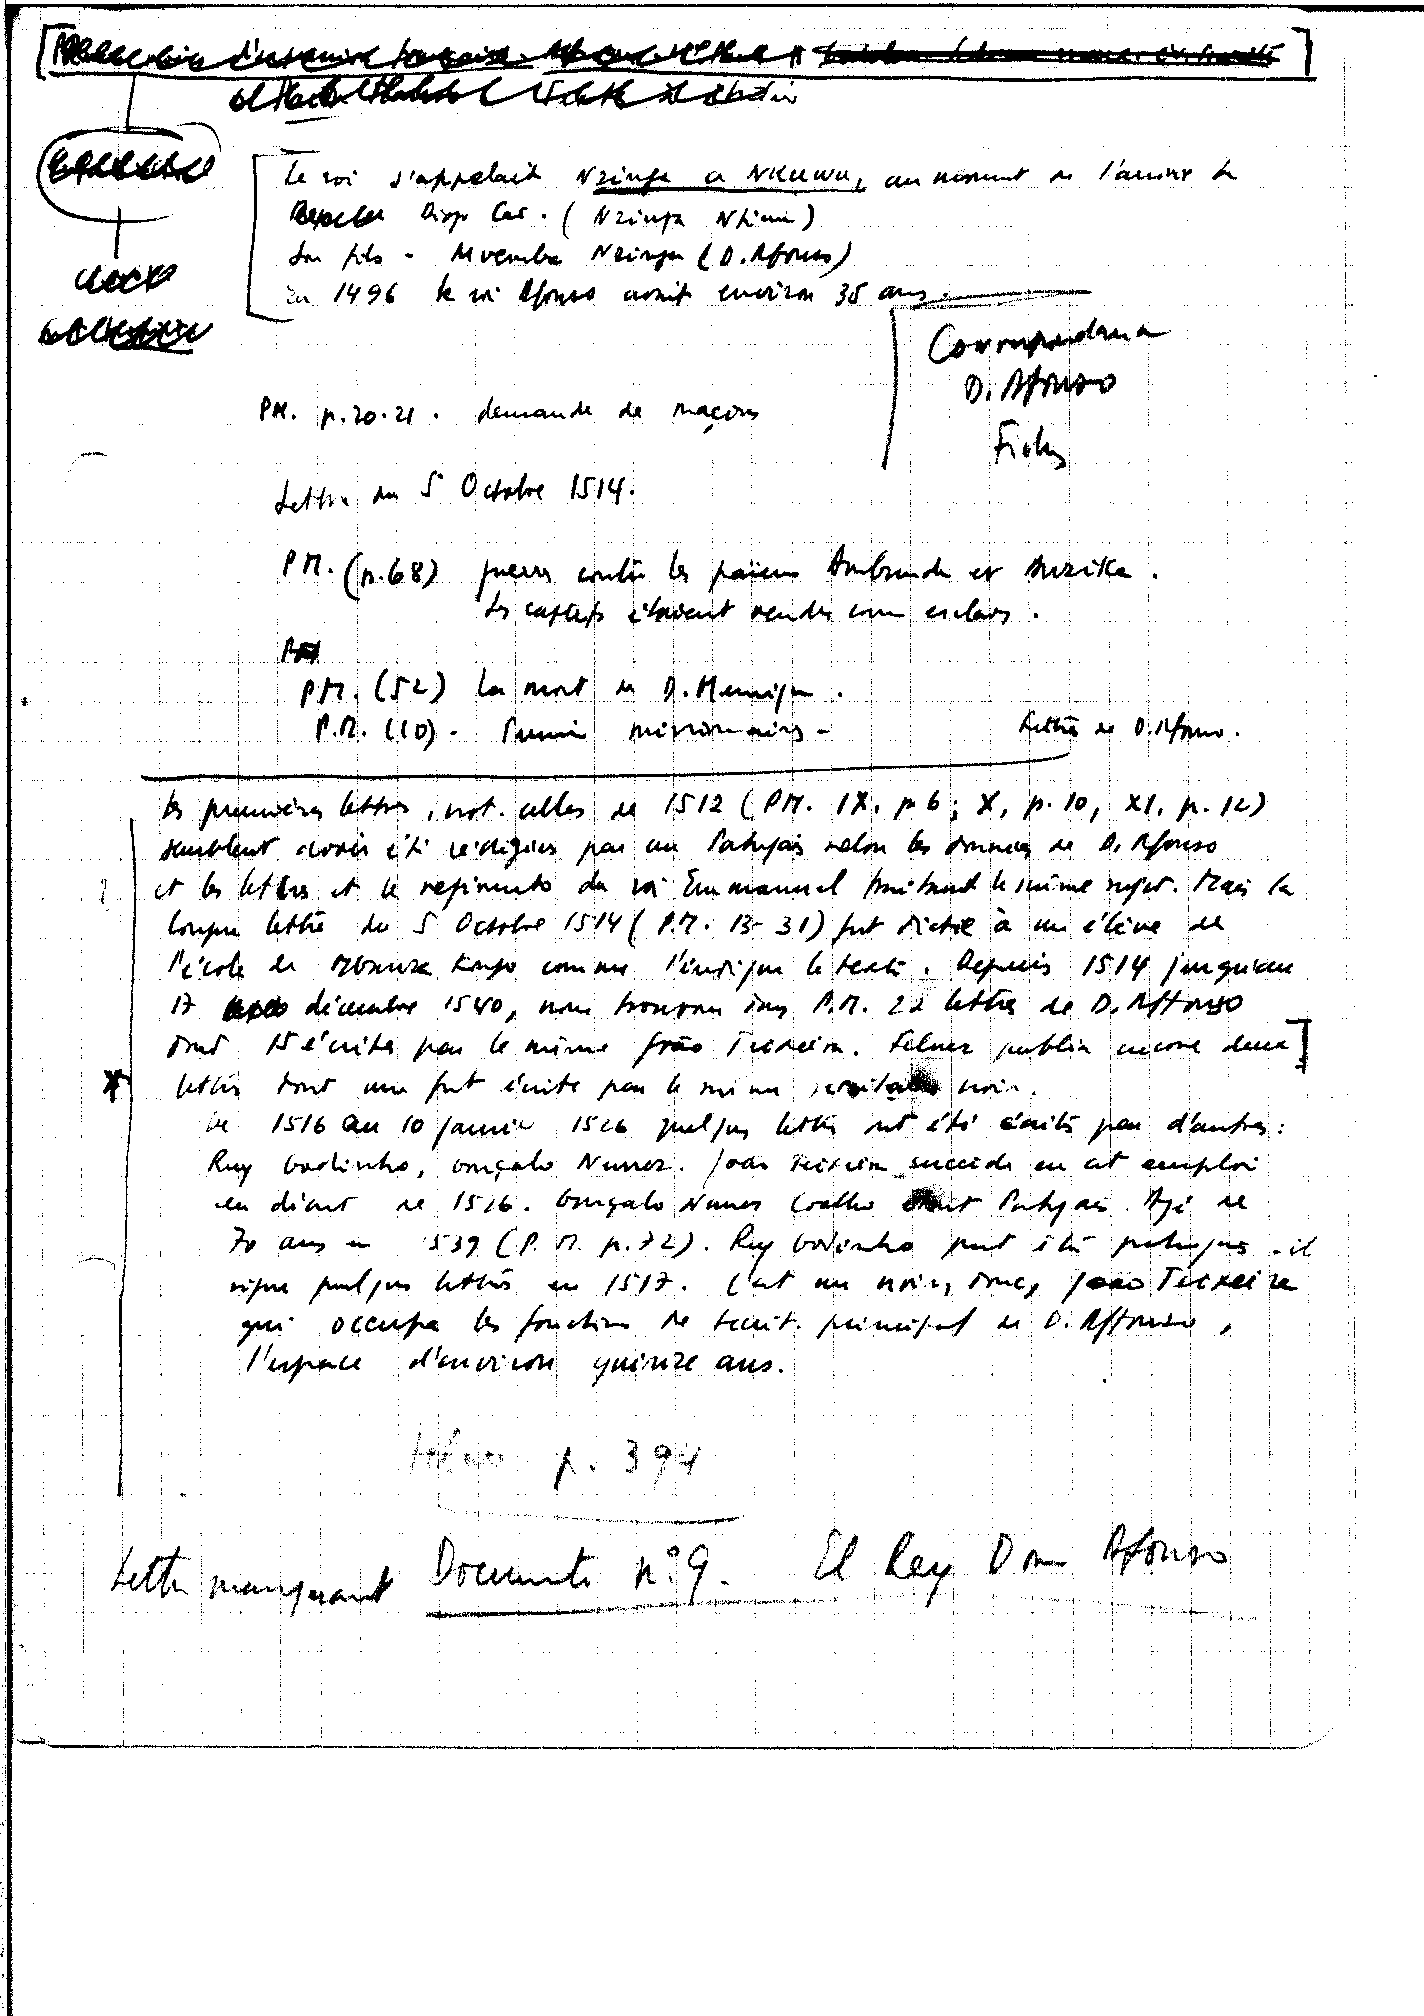 Le roi s'appelait Nzinga a Nkuwu, au moment de l'arrivée de
Diogo Cão. (Nzinga Nkuwu)
Son fils - Mvemba Nzinga (D. Afonso)
En 1496 le roi Afonso avait environ 35 ans.
Correspondance
D. Afonso
Fiches
PM. p. 20-21. demande de maçons
Lettre du 5 Octobre 1514.
PM. (p. 68) guerres contre les païens Ambundu et Anzika.
Les captifs étaient vendus comme esclaves.
PM. (52) La mort de D. Henrique.
P.M. (10) - Premiers missionnaires -
Lettres de D. Afonso.
Les premières lettres, not. celles de 1512 (PM. IX, p 6; X, p. 10, XI, p. 12)
semblent avoir été rédigées par un Portugais selon les données de D. Afonso
et les lettres et le regimento du roi Emmanuel traitant le même sujet. Mais la
longue lettre du 5 Octobre 1514 (P.M. 13-31) fut dictée à un élève de
l'école de Mbanza Kongo comme l'indique le texte. Depuis 1514 jusqu'au
17 décembre 1540, nous trouvons dans P.M. 22 lettres de D. Affonso
dont 15 écrites par le même João Teixeira. Felner publia encore deux]
* lettres dont une fut écrite par le même noir.
De 1516 au 10 janvier 1526 quelques lettres ont été écrites par d'autres:
Ruy Godinho, Gonçalo Nunez. João Teixeira succède en cet emploi
en début de 1526. Gonçalo Nunes Coelho était Portugais. Agé de
70 ans en 1539 (P. M. p. 72). Ruy Godinho peut être portugais - il
signe quelques lettres en 1517. C'est un noir, donc, João Teixeira
qui occupa les fonctions de secrét. principal de D. Affonso,
l'espace d'environ quinze ans.
p. 394
Lettre manquant Documento nº 9. El Rey Dom Afonso